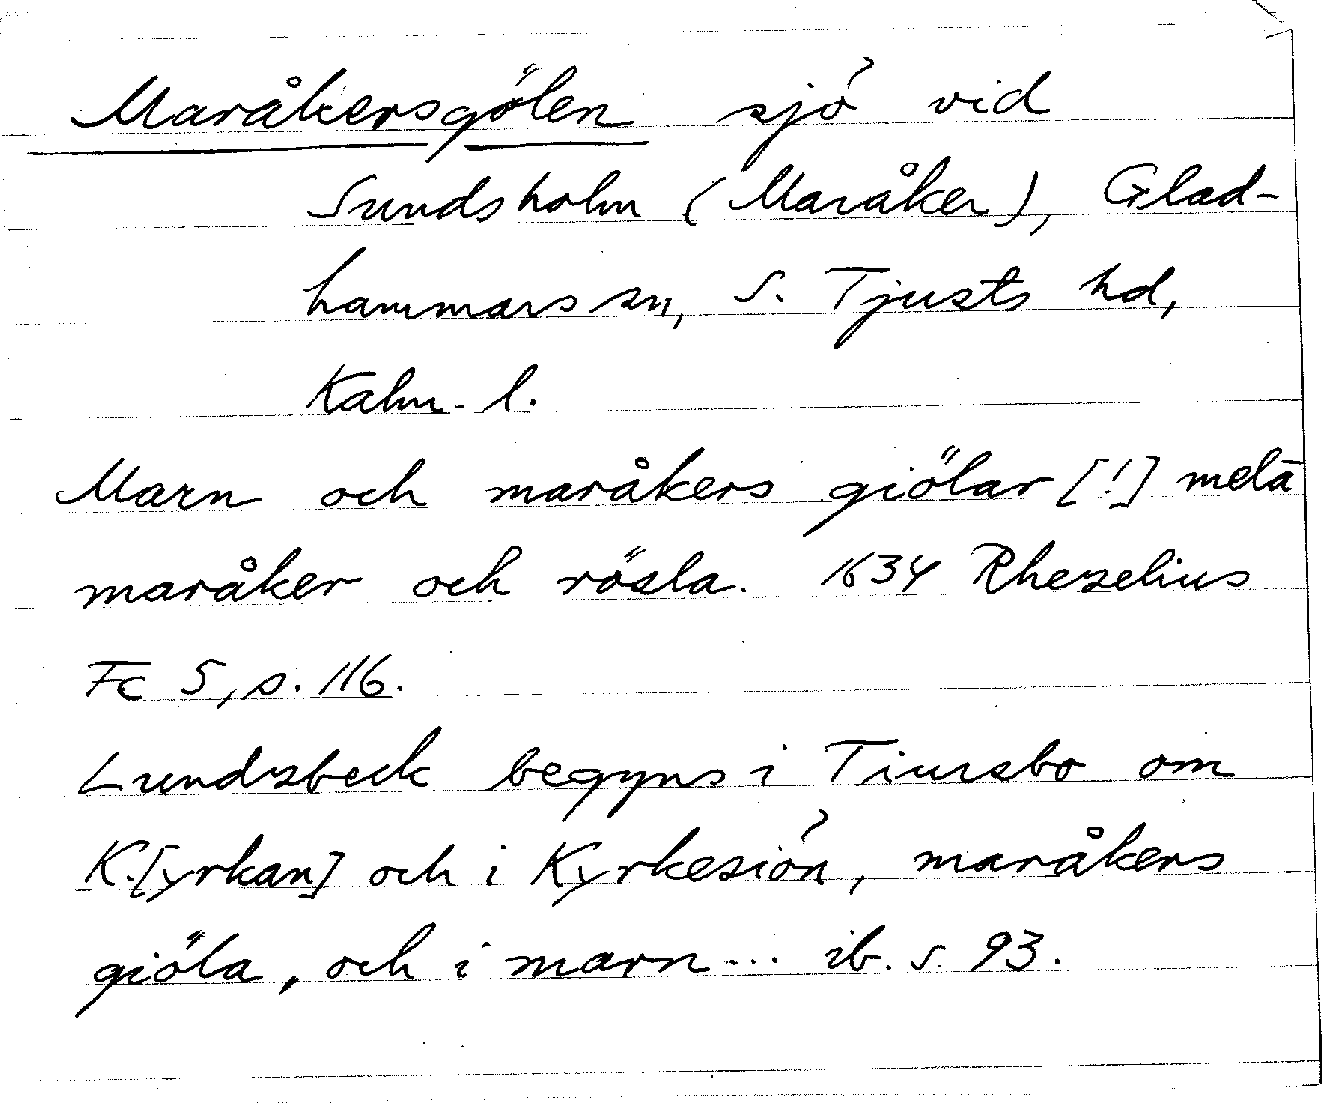 Maråkersgölen sjö vid
Sundsholm (Maråker), Glad-
hammars sn, S. Tjusts hd,
Kalm. l.
Marn och maråkers giölar [!] melā
maråker och rösla. 1634 Rhezelius
Fc 5, s. 116.
Lundzbeck begyns i Tiursbo om
K.[yrkan] och i Kyrkesiön, maråkers
giöla, och i marn... ib. s. 93.